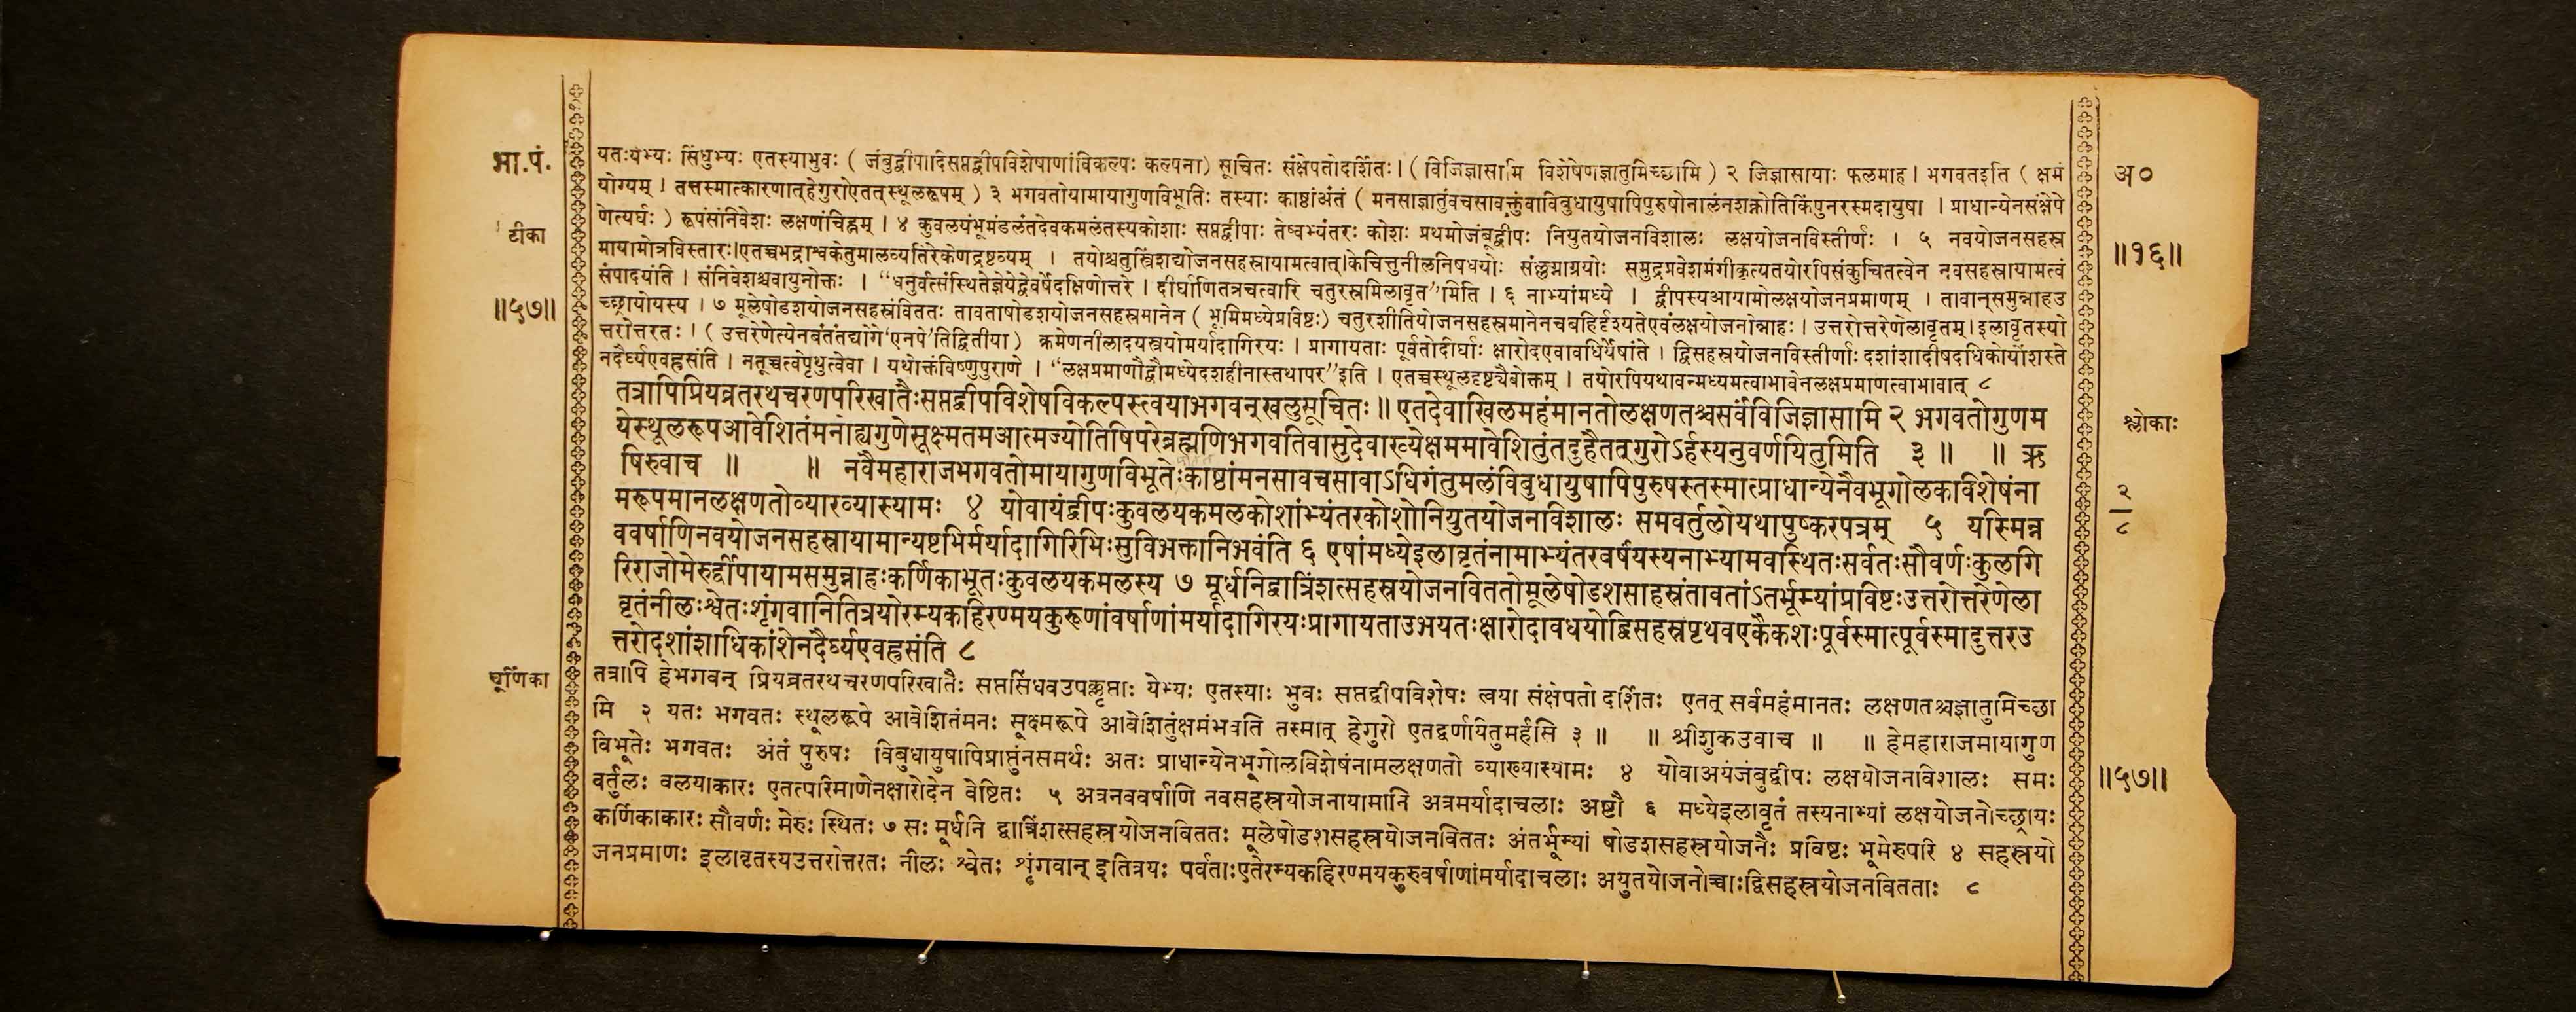 भा.पं.
टीका
॥५७॥
चूर्णिका
यतःयेभ्यः सिंधुभ्यः एतस्याभुवः ( जंबुद्वीपादिसप्तद्वीपविशेषाणांविकल्पः कल्पना) सूचितः संक्षेपतोदर्शितः। ( विजिज्ञासामि विशेषेणज्ञातुमिच्छामि ) २ जिज्ञासायाः फलमाह। भगवतइति ( क्षमं
योग्यम् । तत्तस्मात्कारणात्हेगुरोएतत्स्थूलरूपम् ) ३ भगवतोयामायागुणविभूतिः तस्याः काष्ठांअंतं ( मनसाज्ञातुंवचसावक्तुंवाविबुधायुषापिपुरुषोनालंनशक्नोतिकिंपुनरस्मदायुषा । प्राधान्येनसंक्षेपे
णेत्यर्थः ) रूपंसंनिवेशः लक्षणंचिह्नम् । ४ कुवलयंभूमंडलंतदेवकमलंतस्यकोशाः सप्तद्वीपाः तेष्वभ्यंतरः कोशः प्रथमोजंबूद्वीपः नियुतयोजनविशालः लक्षयोजनविस्तीर्णः । ५ नवयोजनसहस्र
मायामोत्रविस्तारः।एतच्चभद्राश्वकेतुमालव्यतिरेकेणद्रष्टव्यम् । तयोश्चतुस्त्रिंशद्योजनसहस्रायामत्वात्।केचित्तुनीलनिषधयोः संलग्नाग्रयोः समुद्रप्रवेशमंगीकृत्यतयोरपिसंकुचितत्वेन नवसहस्रायामत्वं
संपादयंति । संनिवेशश्चवायुनोक्तः । “धनुर्वत्संस्थितेज्ञेयेद्वेवर्षेदक्षिणोत्तरे । दीर्घाणितत्रचत्वारि चतुरस्रमिलावृत”मिति । ६ नाभ्यांमध्ये । द्वीपस्यआयामोलक्षयोजनप्रमाणम् । तावान्समुन्नाहउ
च्छ्रायोयस्य । ७ मूलेषोडशयोजनसहस्रंविततः तावताषोडशयोजनसहस्रमानेन ( भूमिमध्येप्रविष्टः) चतुरशीतियोजनसहस्रमानेनचबहिर्दृश्यतेएवंलक्षयोजनोन्नाहः। उत्तरोत्तरेणेलावृतम्।इलावृतस्यो
त्तरोत्तरतः । ( उत्तरेणेत्येनबंतंतद्योगे‘एनपे’तिद्वितीया ) क्रमेणनीलादयस्त्रयोमर्यादागिरयः । प्रागायताः पूर्वतोदीर्घाः क्षारोदएवावधिर्येषांते । द्विसहस्रयोजनविस्तीर्णाः दशांशादीषदधिकोयोंशस्ते
नदैर्घ्यएवह्रसंति । नतूच्चत्वेपृथुत्वेवा । यथोक्तंविष्णुपुराणे । “लक्षप्रमाणौद्वौमध्येदशहीनास्तथापर”इति । एतच्चस्थूलदृष्ट्यैवोक्तम् । तयोरपियथावन्मध्यमत्वाभावेनलक्षप्रमाणत्वाभावात् ८
तत्रापिप्रियव्रतरथचरणपरिखातैःसप्तद्वीपविशेषविकल्पस्त्वयाभगवन्खलुसूचितः॥ एतदेवाखिलमहंमानतोलक्षणतश्चसर्वंविजिज्ञासामि २ भगवतोगुणम
येस्थूलरूपआवेशितंमनोह्यगुणेसूक्ष्मतमआत्मज्योतिषिपरेब्रह्मणिभगवतिवासुदेवाख्येक्षममावेशितुंतदुहैतद्गुरोऽर्हस्यनुवर्णयितुमिति ३ ॥ ॥ ऋ
षिरुवाच ॥ ॥ नवैमहाराजभगवतोमायागुणविभूतेःकाष्ठांमनसावचसावाऽधिगंतुमलंविबुधायुषापिपुरुषस्तस्मात्प्राधान्येनैवभूगोलकविशेषंना
मरूपमानलक्षणतोव्याख्यास्यामः ४ योवायंद्वीपःकुवलयकमलकोशाभ्यंतरकोशोनियुतयोजनविशालः समवर्तुलोयथापुष्करपत्रम् ५ यस्मिन्न
ववर्षाणिनवयोजनसहस्रायामान्यष्टभिर्मर्यादागिरिभिःसुविभक्तानिभवंति ६ एषांमध्येइलावृतंनामाभ्यंतरवर्षंयस्यनाभ्यामवस्थितःसर्वतःसौवर्णःकुलगि
रिराजोमेरुर्द्वीपायामसमुन्नाहःकर्णिकाभूतःकुवलयकमलस्य ७ मूर्धनिद्वात्रिंशत्सहस्रयोजनविततोमूलेषोडशसाहस्रंतावतांऽतर्भूम्यांप्रविष्टःउत्तरोत्तरेणेला
वृतंनीलःश्वेतःशृंगवानितित्रयोरम्यकहिरण्मयकुरूणांवर्षाणांमर्यादागिरयःप्रागायताउभयतःक्षारोदावधयोद्विसहस्रंपृथवएकैकशःपूर्वस्मात्पूर्वस्मादुत्तरउ
त्तरोदशांशाधिकांशेनदैर्घ्यएवह्रसंति ८
तत्रापि हेभगवन् प्रियव्रतरथचरणपरिखातैः सप्तसिंधवउपक्लृप्ताः येभ्यः एतस्याः भुवः सप्तद्वीपविशेषः त्वया संक्षेपतो दर्शितः एतत् सर्वमहंमानतः लक्षणतश्चज्ञातुमिच्छा
मि २ यतः भगवतः स्थूलरूपे आवेशितंमनः सूक्ष्मरूपे आवेशितुंक्षमंभवति तस्मात् हेगुरो एतद्वर्णयितुमर्हसि ३ ॥ ॥ श्रीशुकउवाच ॥ ॥ हेमहाराजमायागुण
विभूतेः भगवतः अंतं पुरुषः विबुधायुषापिप्राप्तुंनसमर्थः अतः प्राधान्येनभूगोलविशेषंनामलक्षणतो व्याख्यास्यामः ४ योवाअयंजंबुद्वीपः लक्षयोजनविशालः समः
वर्तुलः वलयाकारः एतत्परिमाणेनक्षारोदेन वेष्टितः ५ अत्रनववर्षाणि नवसहस्रयोजनायामानि अत्रमर्यादाचलाः अष्टौ ६ मध्येइलावृतं तस्यनाभ्यां लक्षयोजनोच्छ्रायः
कर्णिकाकारः सौवर्णः मेरुः स्थितः ७ सः मूर्धनि द्वात्रिंशत्सहस्रयोजनविततः मूलेषोडशसहस्रयोजनविततः अंतर्भूम्यां षोडशसहस्रयोजनैः प्रविष्टः भूमेरुपरि ४ सहस्रयो
जनप्रमाणः इलावृतस्यउत्तरोत्तरतः नीलः श्वेतः शृंगवान् इतित्रयः पर्वताःएतेरम्यकहिरण्मयकुरुवर्षाणांमर्यादाचलाः अयुतयोजनोच्चाःद्विसहस्रयोजनवितताः ८
अ०
॥१६॥
श्लोकाः
२
८
॥५७॥